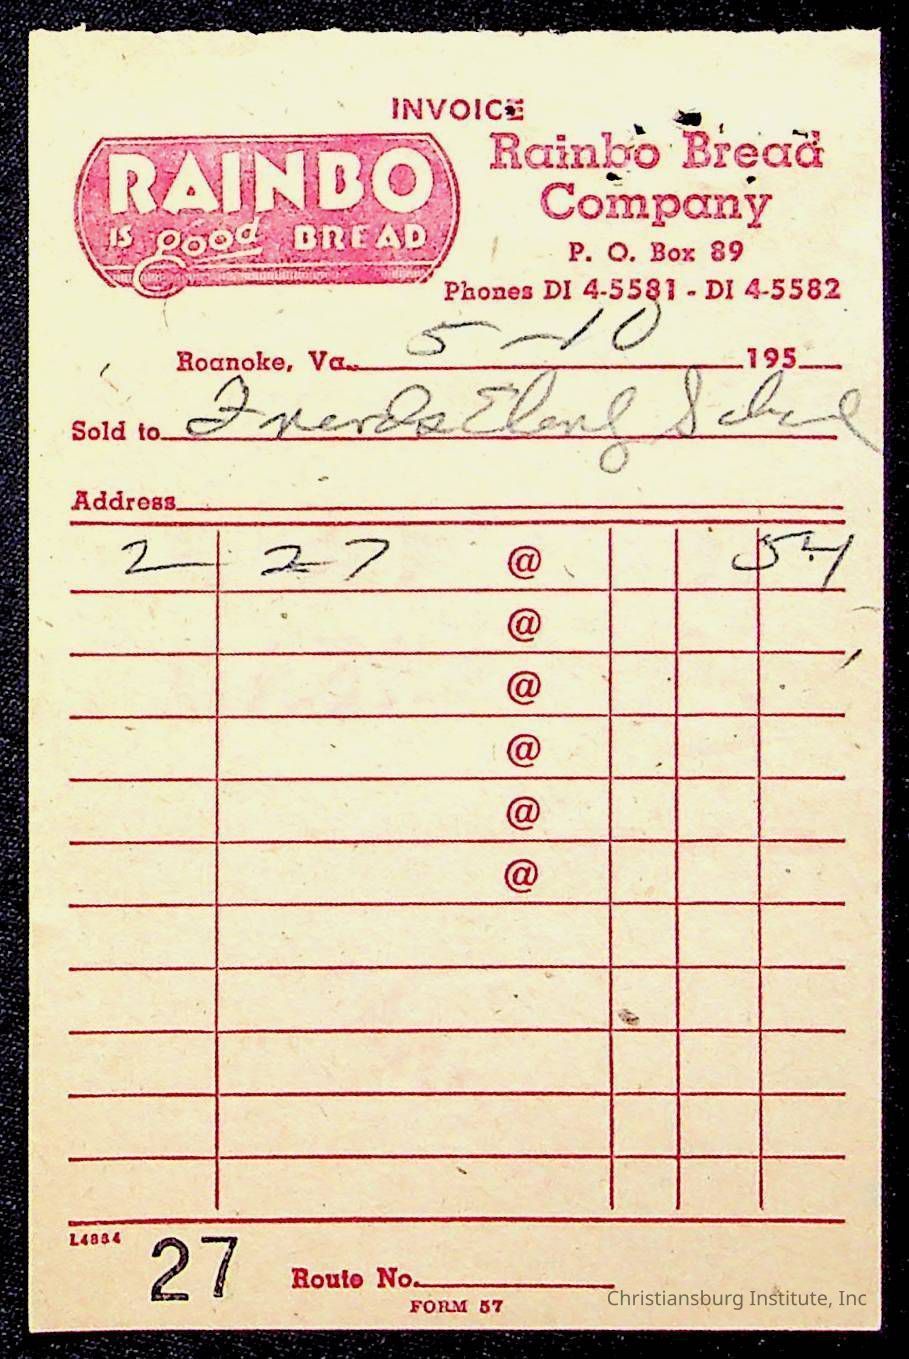 INVOICE
RAINBO
IS good BREAD
Rainbo Bread
Company
P. O. Box 89
Phones DI 4-5581 - DI 4-5582
Roanoke, Va. 5-10 195
Sold to Friends Elem School
Address
2 27 @ 54
@
@
@
@
@
L4884
27 Route No.
FORM 57
Christiansburg Institute, Inc